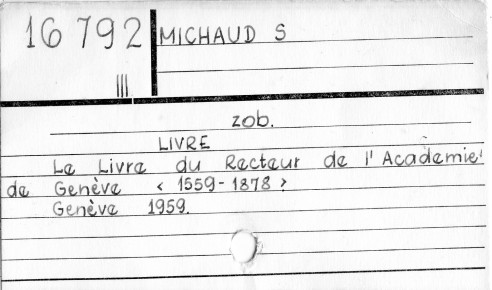 16 792 MICHAUD S
III
zob.
LIVRE
Le Livre du Recteur de l'Academie
de Genève < 1559-1878 >
Genève 1959.